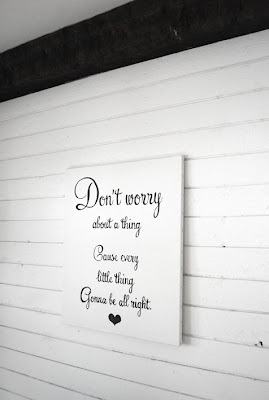 Don't worry
about a thing
Cause every
little thing
Gonna be all right.